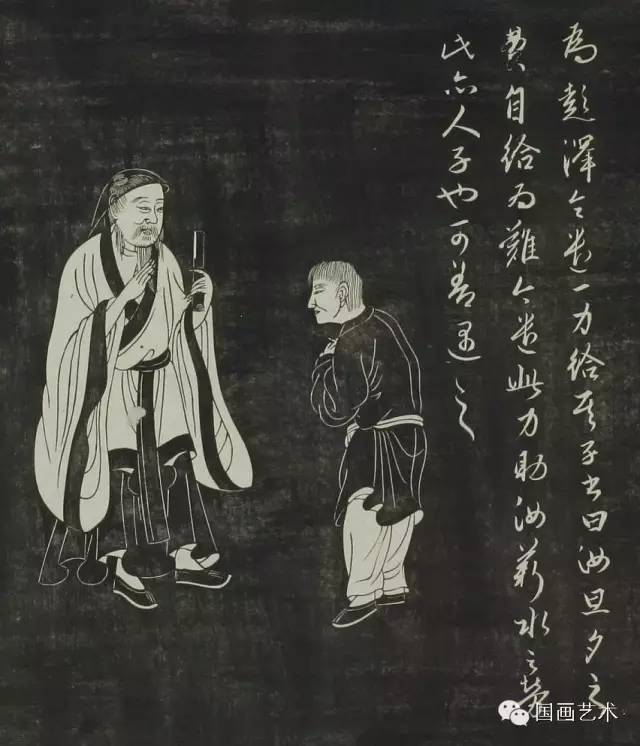 為彭澤令遣一力給其子書曰汝旦夕之
費自給為難今遣此力助汝薪水之勞
此亦人子也可善遇之
国画艺术